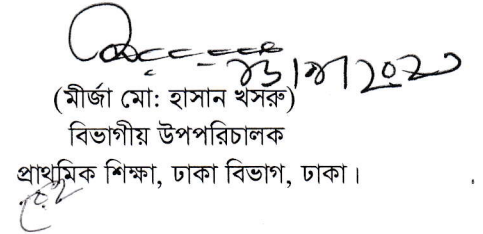 (মীর্জা মো: হাসান খসরু)
বিভাগীয় উপপরিচালক
প্রাথমিক শিক্ষা, ঢাকা বিভাগ, ঢাকা।